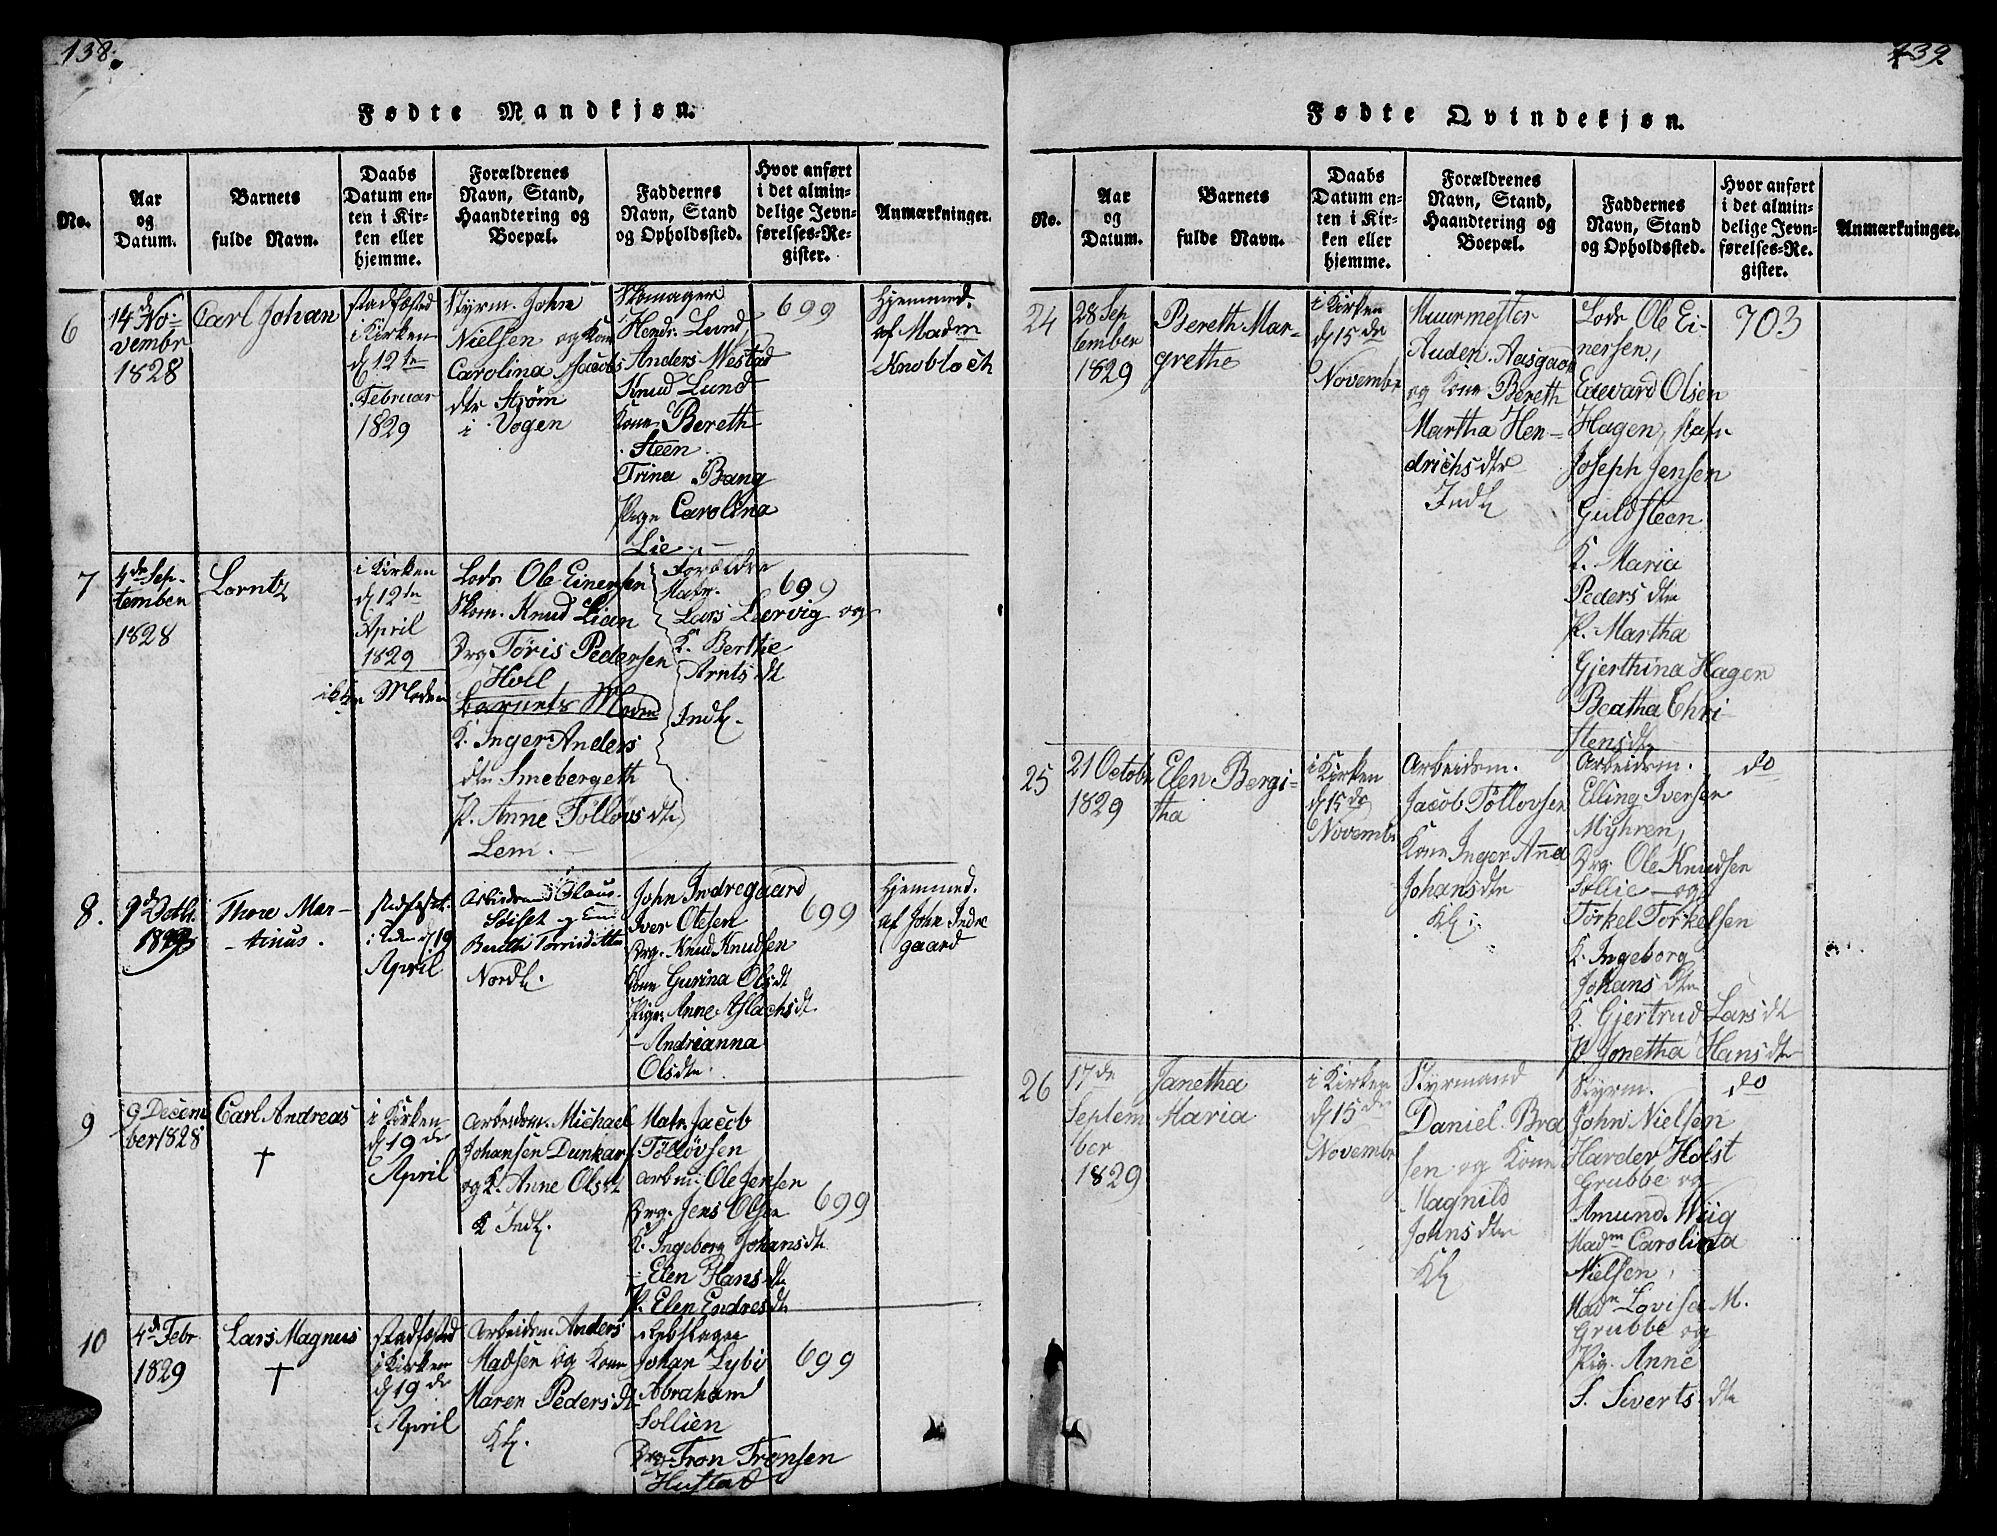 138.
Fødte Mandkjøn.
No.
Aar
og
Datum.
Barnets
fulde Navn.
Daabs
Datum en-
ten i Kir-
ken eller
hjemme.
Forældrenes
Navn, Stand,
Haandtering og
Boepæl.
Faddernes
Navn, Stand
og Opholdssted.
Hvor anført
i det almin-
delige Jevn-
førelses-Re-
gister.
Anmærkninger.
6
14 de No-
vembr
1828
Carl Johan
stadfæsted
i Kirken
d 12te
Februar
1829
Styrm. John
Nielsen og Kone
Carolina Jacobs
dtr Strøm
i Vogen
Skomager
Hendr. Lund,
Anders Mestad
Knud Lund
Kone Bereth
Steen
Trina Bang
Pige Carolina
Lie
699
Hjemmed.
af Madm
Knobloch
7
4de Sep-
tember
1828
Lorntz
i Kirken
d 12te
April
1829
Lods Ole Einersen
Skom. Knud Lian
Drg. Tøris Pedersen
Holl
Barnets Moder
K. Inger Anders
dtr Smebergeth
P. Anne Tølløvs dtr
Lem.
Forældre
Matr.
Lars Lervig og
K. Berthe
Arnts dt
Indl.
699
8.
9de Octb.
Thore Mar-
tinus.
April
Nordl.
John Indregaard
Iver Olesen
Drg. Knud Knudsen
Kone Gurina Olsdt
Pige Anne Aslachsdt
Andrianna
Olsdtr.
699
Hjemmed.
af John Indre
gaard
9
9 Decem
ber 1828
Carl Andreas
†
i Kirken
d 19de
April
Arbeidsm. Michael
Johansen Dunkar
og K. Anne Olsdt
K Indl.
Matr. Jacob
Tølløvsen
Arbm. Ole Jensen
Drg. Jens Olsen
K. Ingeborg Johansdtr
Elen Hansdtr
P. Elen Endresdtr
699
10
4de Febr
1829
Lars Magnus
†
stadfæsted
i Kirken
d 19de
April
Arbeidsm. Anders
Madsen og Kone
Maren Peders dt
Kl.
Johan Lybi
Abraham
Sollien
Drg. Tron Tronsen
Hustad
699
139.
Fødte Qvindekjøn.
No.
Aar
og
Datum.
Barnets
fulde Navn.
Daabs
Datum en-
ten i Kir-
ken eller
hjemme.
Forældrenes
Navn, Stand,
Haandtering og
Boepæl.
Faddernes
Navn, Stand
og Opholdssted.
Hvor anført
i det almin-
delige Jevn-
førelses-Re-
gister.
Anmærkninger.
24
28 Sep
tember
1829
Bereth Mar-
grethe
i Kirken
d 15de
Novembr
Muurmester
Auden Aasgaard
og Kone Bereth
Martha Hen-
drichsdtr
Indl
Lods Ole Ei-
nersen,
Edevard Olsen
Hagen, Matr
Joseph Jensen
Guldsteen
K. Maria
Peders dtr
P. Martha
Gjerthina Hagen
Beatha Chri-
stensdtr
703
25
21 Octobr
1829
Elen Bergi-
tha
i Kirken
d 15de
Novembr
Arbeidsm.
Jacob Tøllovsen
Kone Inger Anna
Johansdtr
Kl.
Arbeidsm.
Elling Iversen
Myhren,
Drg. Ole Knudsen
Sollie og
Torkel Torkelsen
K. Ingeborg
Johans dtr
K. Gjertrud Larsdt
P. Jonetha Hansdtr
do
26
17de
Septem
ber
1829
Janetha
Maria
i Kirken
d 15de
Novembr
Styrmand
Daniel Bra
sen og Kone
Magnild
Johnsdtr
Kl
Styrm.
John Nielsen
Harder Holst
Grubbe og
Amund Wiig
Madm Carolina
Nielsen,
Madm Lovisa M.
Grubbe og
Pig. Anne
S. Siverts dtr
do